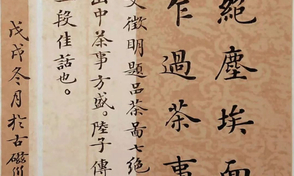 絕塵埃面
乍過茶事
文徵明題品茶圖七絕
山中茶事方盛陸子傳
一段佳話也。
戊戌冬月於古磁